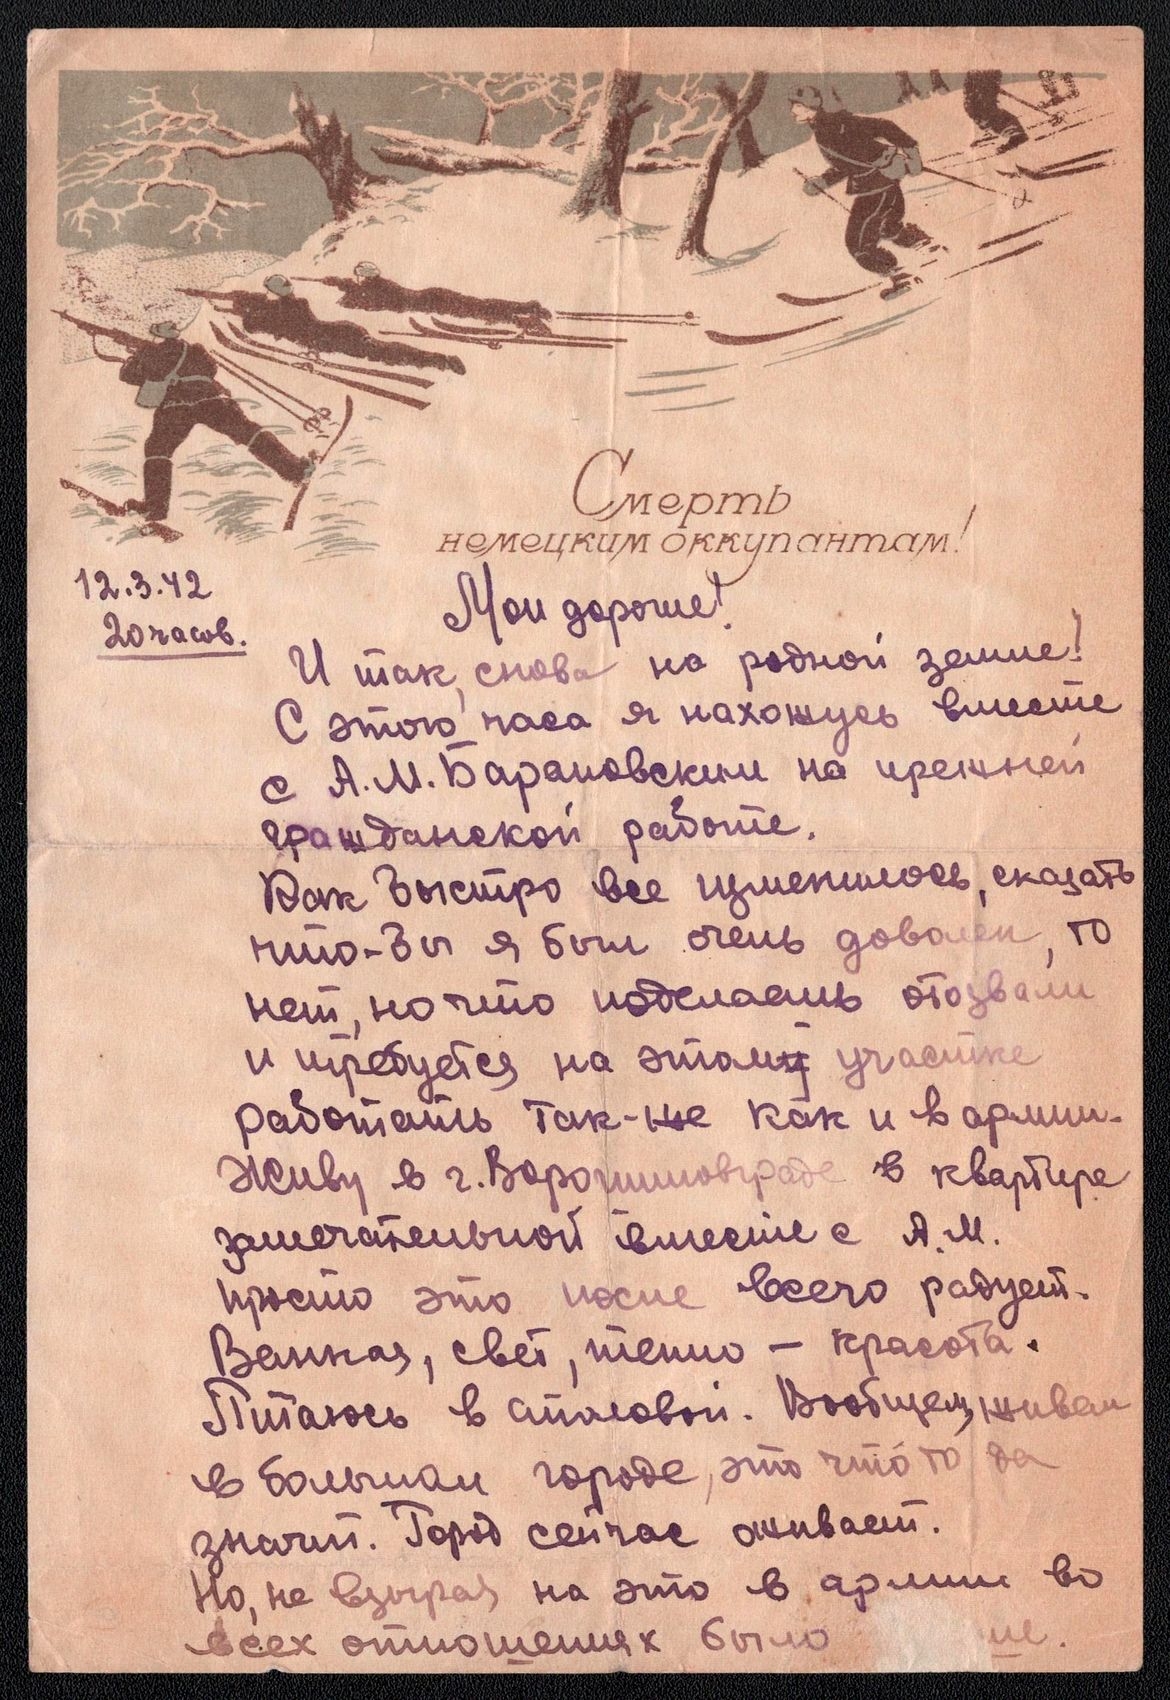 Смерть
немецким оккупантам!
12.3.42
20 часов.
Мои дорогие!
И так, снова на родной земле!
С этого часа я нахожусь вместе
с А.М. Барановским на прежней
гражданской работе.
Как быстро все изменилось, сказать
что-бы я был очень доволен, то
нет, но что поделаешь отозвали
и требуется на этом участке
работать так-же как и в армии.
Живу в г. Ворошиловграде в квартире
замечательной вместе с А.М.
просто это после всего радует.
Ванная, свет, тепло – красота.
Питаюсь в столовой. Вообщем, живем
в большом городе, это что то да
значит. Город сейчас оживает.
Но, не взырая на это в армии во
всех отношениях было